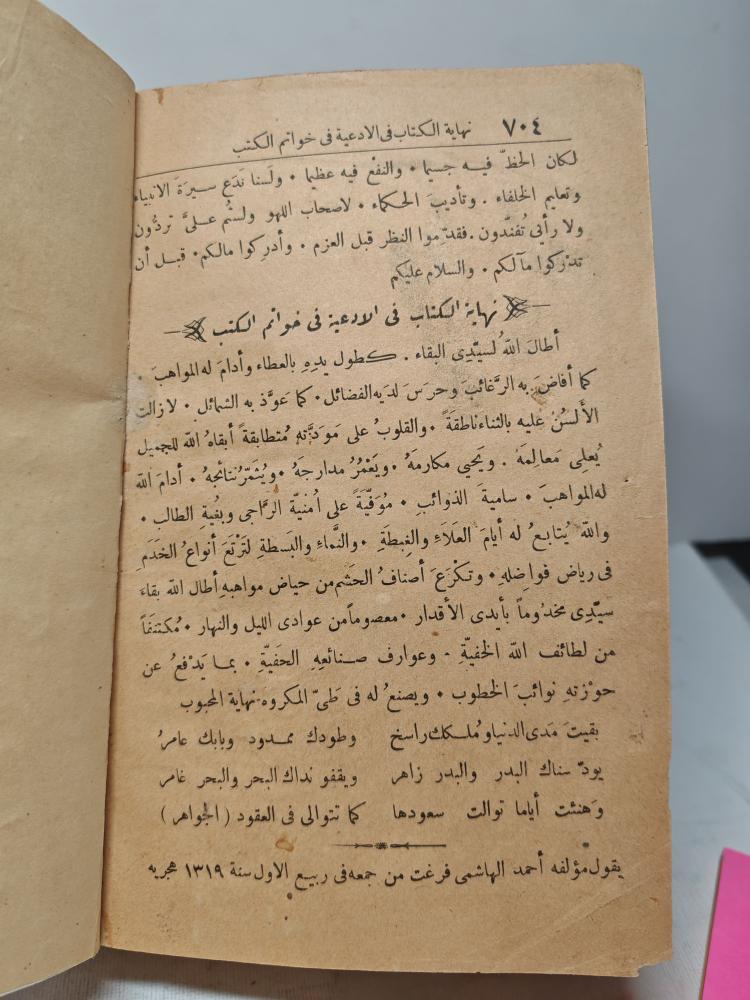 ٧٠٤ نهاية الكتاب فى الادعية فى خواتم الكتب
لكان الحظّ فيه جسيما ٠ والنفْع فيه عظيما ٠ ولَسنا نَدَع سيرَة الانبياء
وتعليم الخلفاء . وتأديبَ الحكماء ٠ لاصحاب اللهو ولستُم علىَّ تردُّون
ولا رأبى تُفنّدون . فقدّموا النظر قبل العزم ٠ وأدركوا مالكم ٠ قبل أن
تدْركوا مآلكم ٠ والسلام عليكم
نهاية الكتاب فى الادعية فى خواتم الكتب
أطالَ اللهُ لسيّدِى البقاء . كطول يدِهِ بالعطاء وأدامَ له المواهبَ ٠
كما أفاضَ به الرَّغائبَ وحرَسَ لديه الفضائل ٠ كما عَوَّذ به الشمائل ٠ لازالت
الأَلسُنُ عليه بالثناء ناطقةً ٠ والقلوبُ على مَوَدَّته مُتطابقةً أبقاهُ الله للجميل
يُعلى مَعالِمَهُ . ويَحيى مكارمَهُ ٠ ويَعْمُرُ مدارجَهُ ٠ ويُثمّرُ نتائجهُ ٠ أدامَ الله
له المواهبَ ٠ ساميةَ الذوائبِ ٠ مُوَفّيَةً على أُمنيّة الرَّاجى وبغيةِ الطالب ٠
واللهُ يُتابعُ له أيامَ العَلَاءِ والغِبطةِ ٠ والنَّماءِ والبَسطةِ لتَرْتَعَ أنواعُ الخَدَمِ
فى رياض فواضِلهِ ٠ وتَكْرَعَ أصنافُ الحَشَمِ من حياض مواهبِهِ أطال الله بقاءَ
سيّدِى مخدُوماً بأيدى الأقدار ٠ معصوماً من عوادى الليل والنهار ٠ مُكتَنَفاً
من لطائف الله الخفيّةِ ٠ وعوارف صنائعِهِ الحَفيّةِ ٠ بما يَدْفعُ عن
حوْزتهِ نوائبَ الخطوب ٠ ويصنعُ له فى طَىّ المكروه ٠ نهاية المحبوب
بقيتَ مَدى الدنيا ومُلكك راسخ وطودك ممدود وبابك عامرُ
يودّ سناك البدر والبدر زاهر ويقفو نداك البحر والبحر غامر
وَهنئت أياما توالت سعودها كما تتوالى فى العقود ( الجواهر )
يقول مؤلفه أحمد الهاشمى فرغت من جمعه فى ربيع الاول سنة ١٣١٩ هجريه